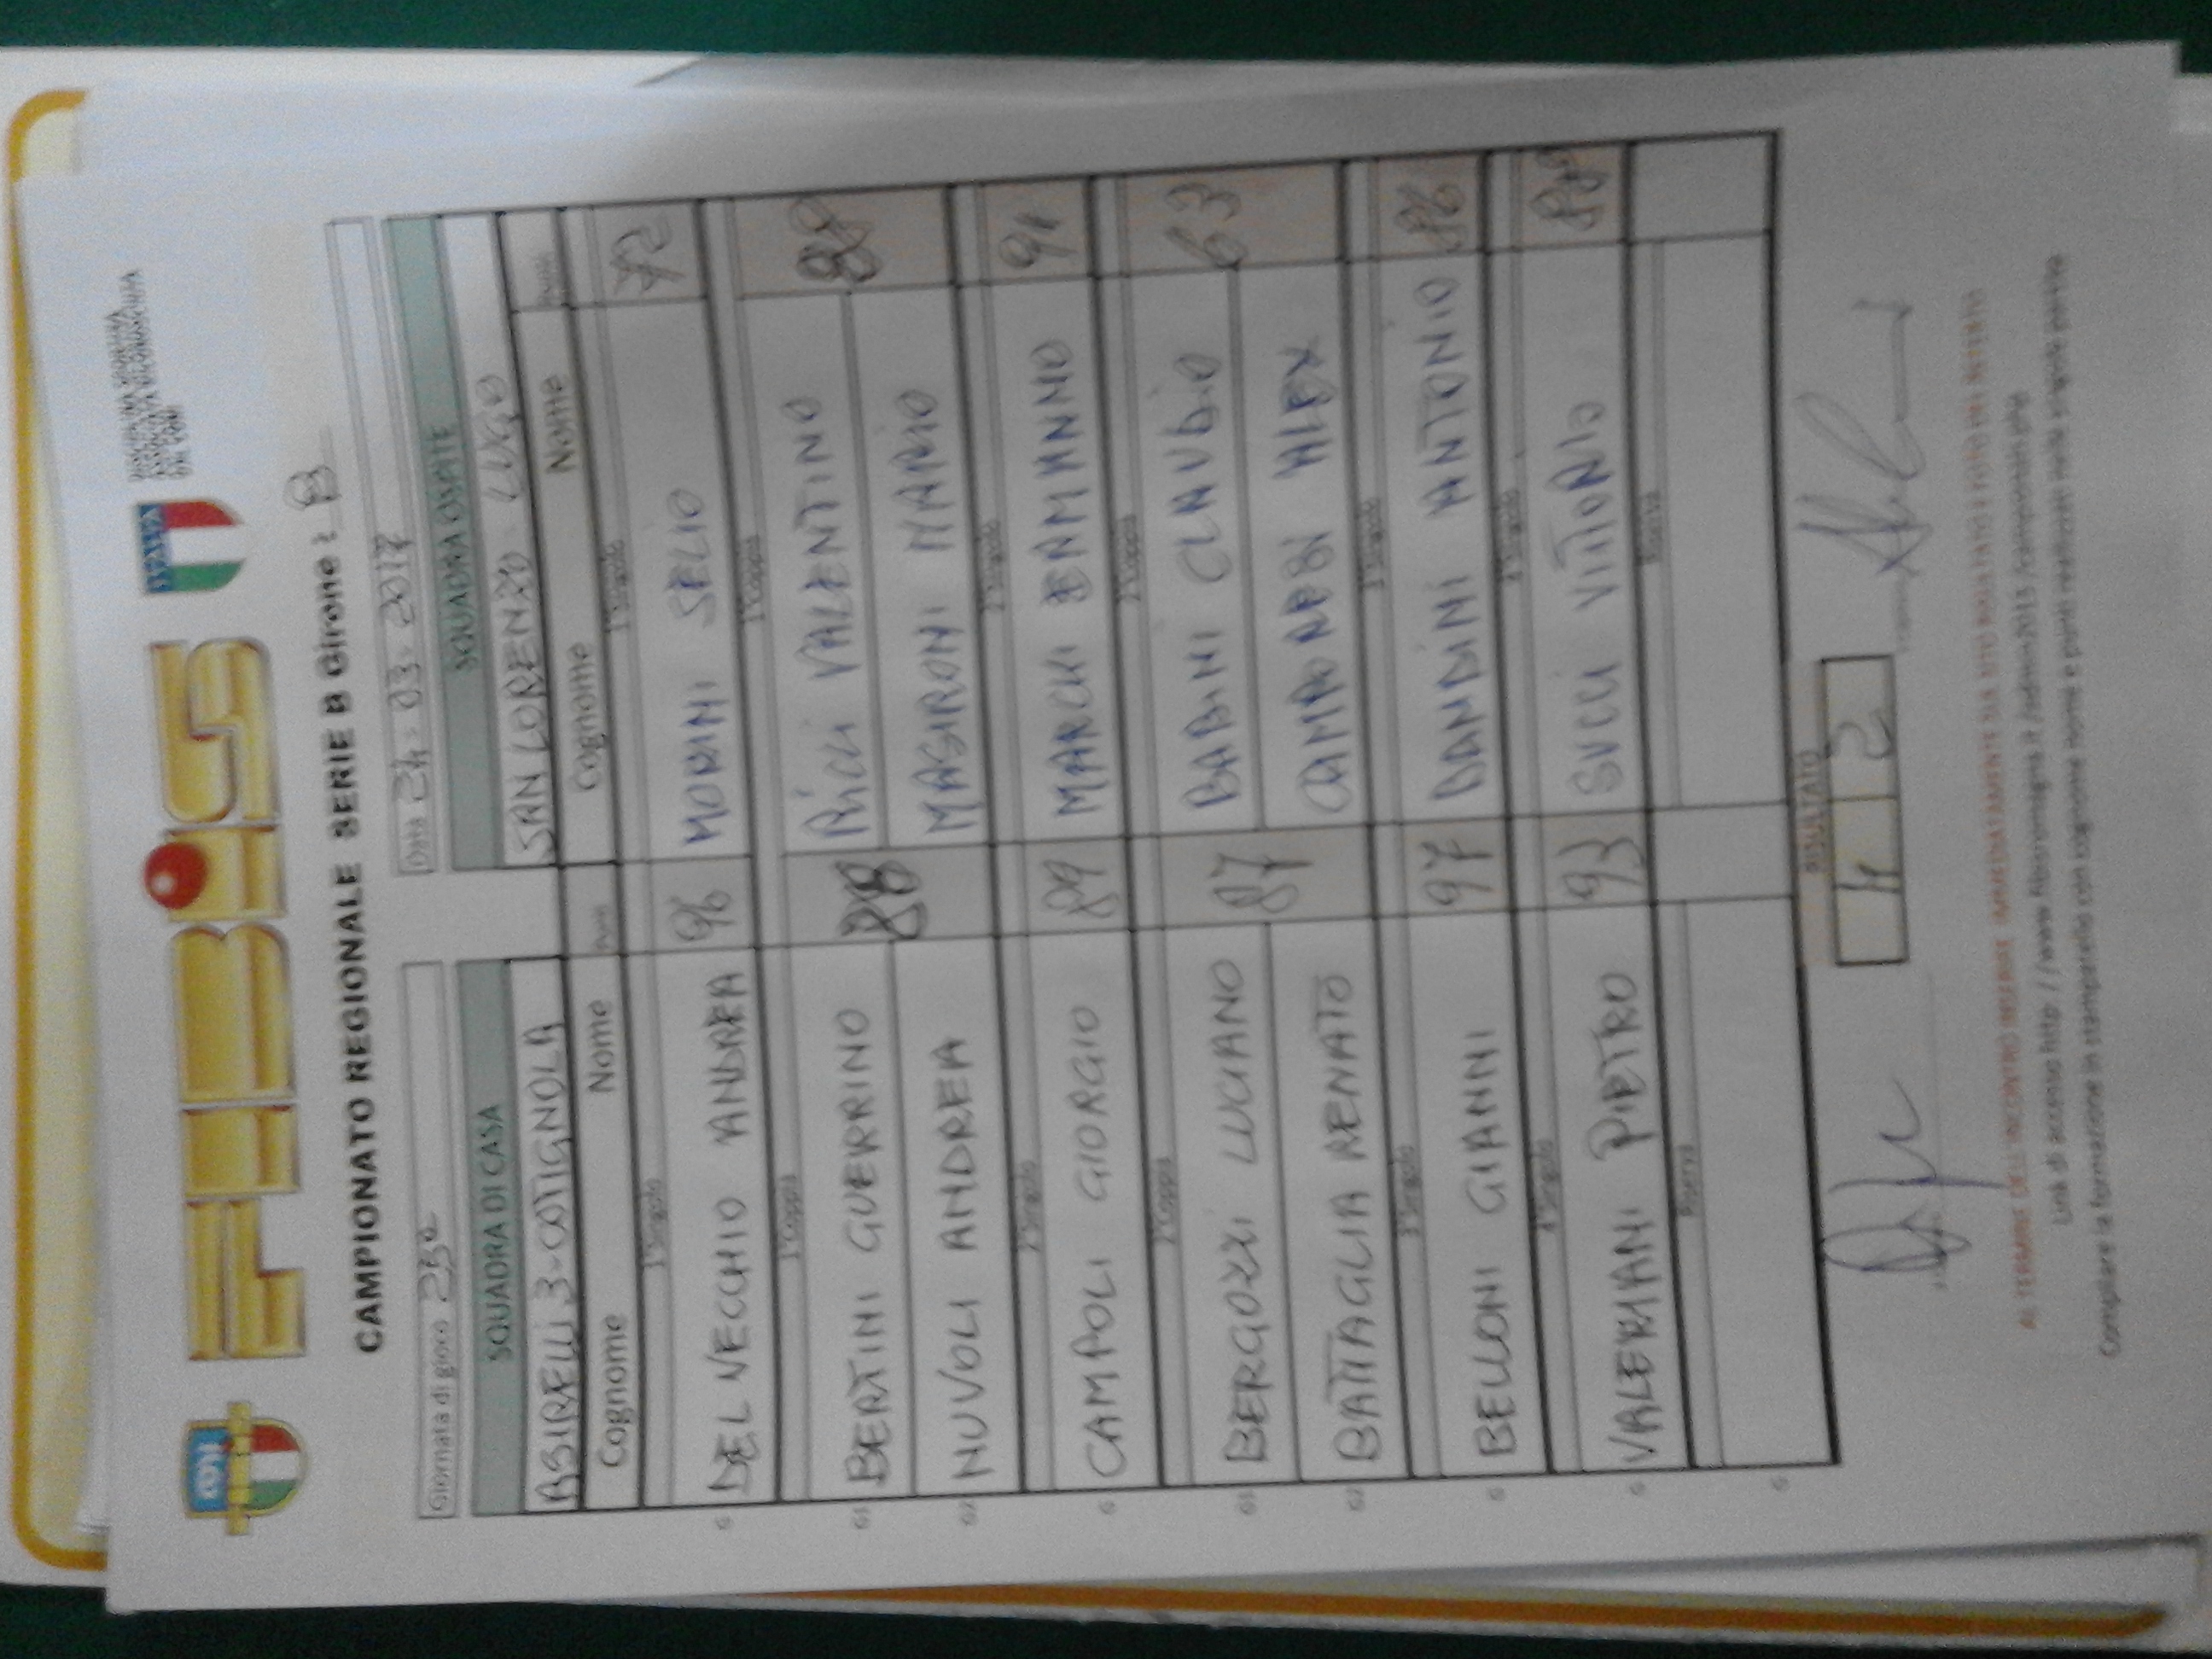 CONI
FIBiS
CAMPIONATO REGIONALE SERIE B Girone: B
Giornata di gioco 23° Data 24-03-2017
SQUADRA DI CASA SQUADRA OSPITE
ASIRELLI 3-COTIGNOLA SAN LORENZO LUGO
Cognome Nome Punti Cognome Nome Punti
1°Singolo 1°Singolo
G DEL VECCHIO ANDREA 96 MORINI SELIO 72
1°Coppia 1°Coppia
G1 BERTINI GUERRINO 88 RICCI VALENTINO
G2 NUVOLI ANDREA MAGIRONI MARIO
2°Singolo 2°Singolo
G CAMPOLI GIORGIO 89 MARCHI ERMANNO 91
2°Coppia 2°Coppia
G1 BERGOZZI LUCIANO 87 BABINI CLAUDIO 63
G2 BATTAGLIA RENATO CAMPORESI ALEX
3°Singolo 3°Singolo
G BELLONI GIANNI 97 DANDINI ANTONIO 86
4°Singolo 4°Singolo
G VALERIANI PIETRO 93 SUCCI VITTORIO
Riserva Riserva
G
RISULTATO
4 2
AL TERMINE DELL'INCONTRO INSERIRE IMMEDIATAMENTE SUL SITO RISULTATO E FOTO DEL REFERTO
Link di accesso http://www.fibisromagna.it/admin2015/campionati.php
Compilare la formazione in stampatello con cognome nome e punti realizzati nelle singole partite